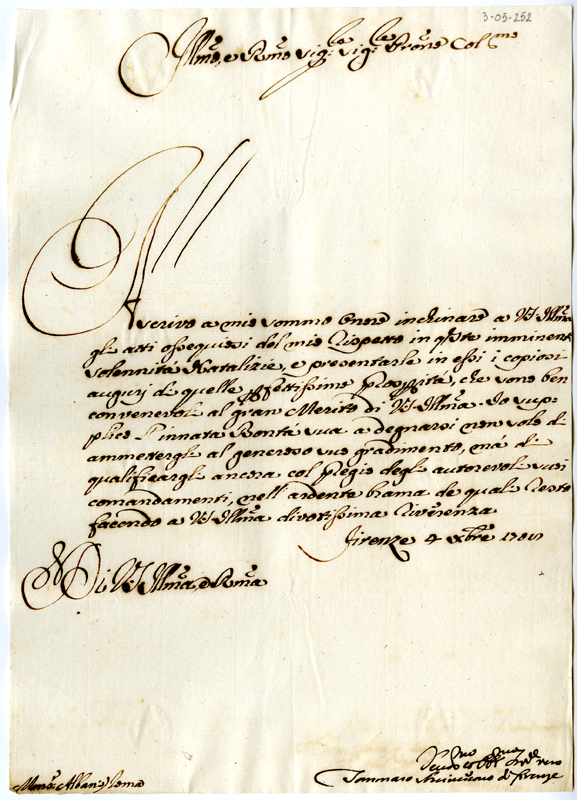 3-05-252
Illmo, e Rmo Sig:re Sig:re Prone Col:mo
Ascrivo a mio sommo onore inchinare a V.S. Illma
gli atti ossequiosi del mio rispetto in qste imminenti
solennità Natalizie, e presentarle in essi i copiosi
auguri di quelle pfettissime prosprità, che sono ben
convenevoli al gran Merito di V.S. Illma. Io sup-
plico l'innata Bontà sua a degnarsi non solo di
ammettergli al generoso suo gradimento, mà di
qualificargli ancora col pregio degli autorevoli suoi
comandamenti, nell'ardente brama de quali resto
facendo a V.S. Illma divotissima riverenza
Firenze 4 Xbre
Di V.S. Illma, e Rma
Monsr Albani Roma
Tommaso di Firenze